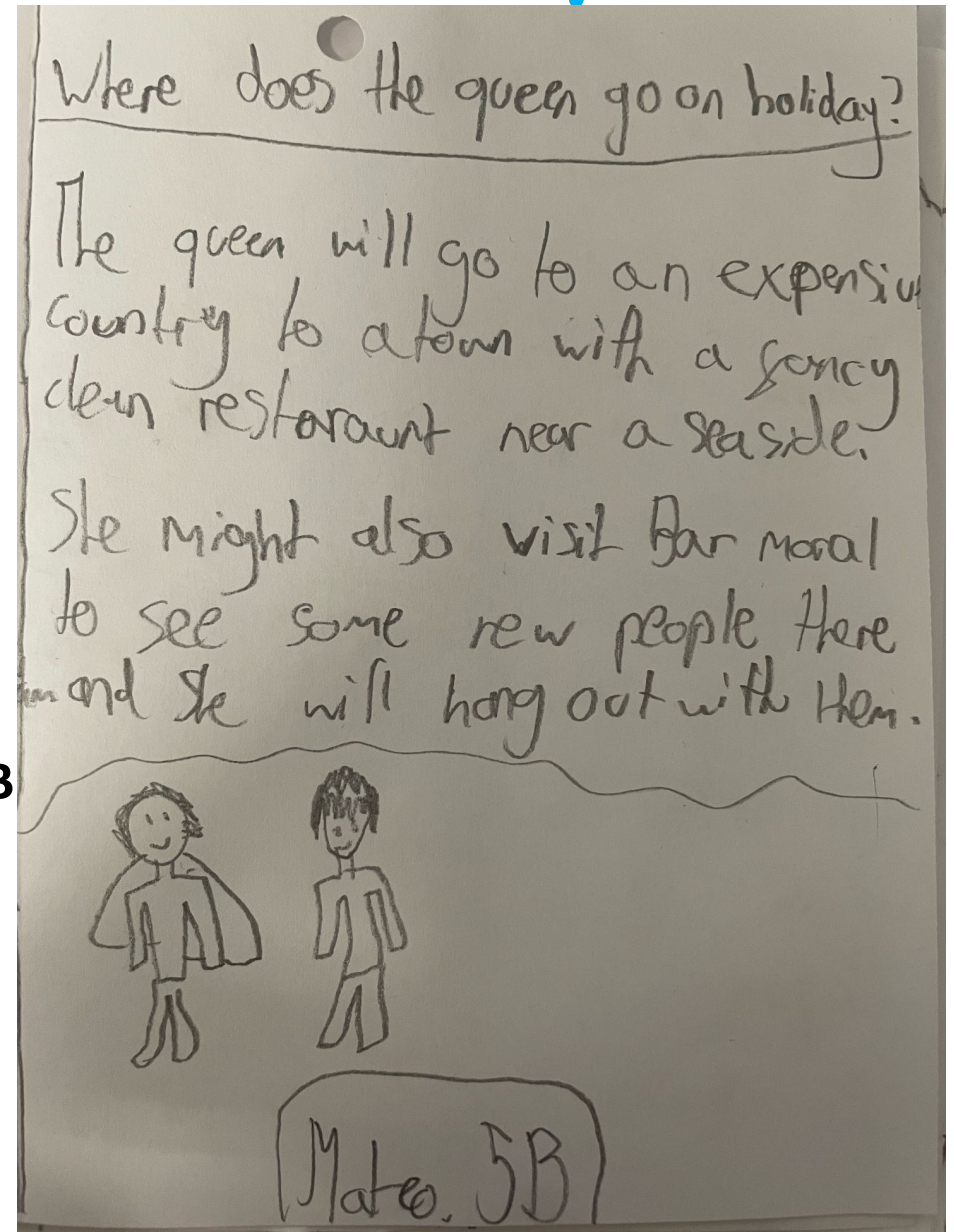 Where does the queen go on holiday?
The queen will go to an expensive
country to a town with a fancy
clean restaraunt near a seaside.
She might also visit Bar moral
to see some new people there
and she will hang out with them.
Mateo. 5B